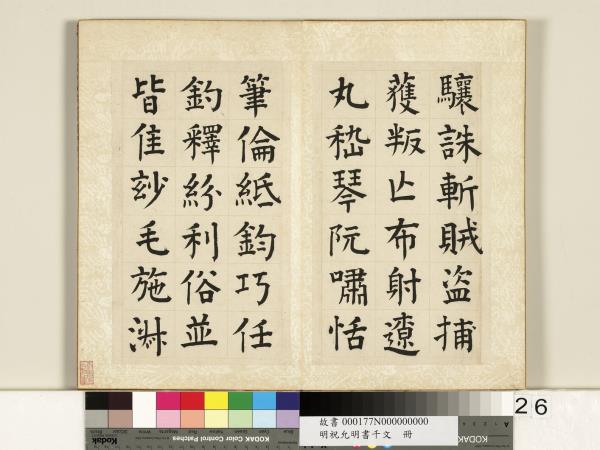 驤誅斬賊盜捕
蒦叛亡布射遼
丸嵇琴阮嘯恬
筆倫紙鈞巧任
釣釋紛利俗並
皆佳玅毛施淋
26
故書 000177N000000000
明祝允明書千文 冊
KODAK Color Control Patches
Kodak